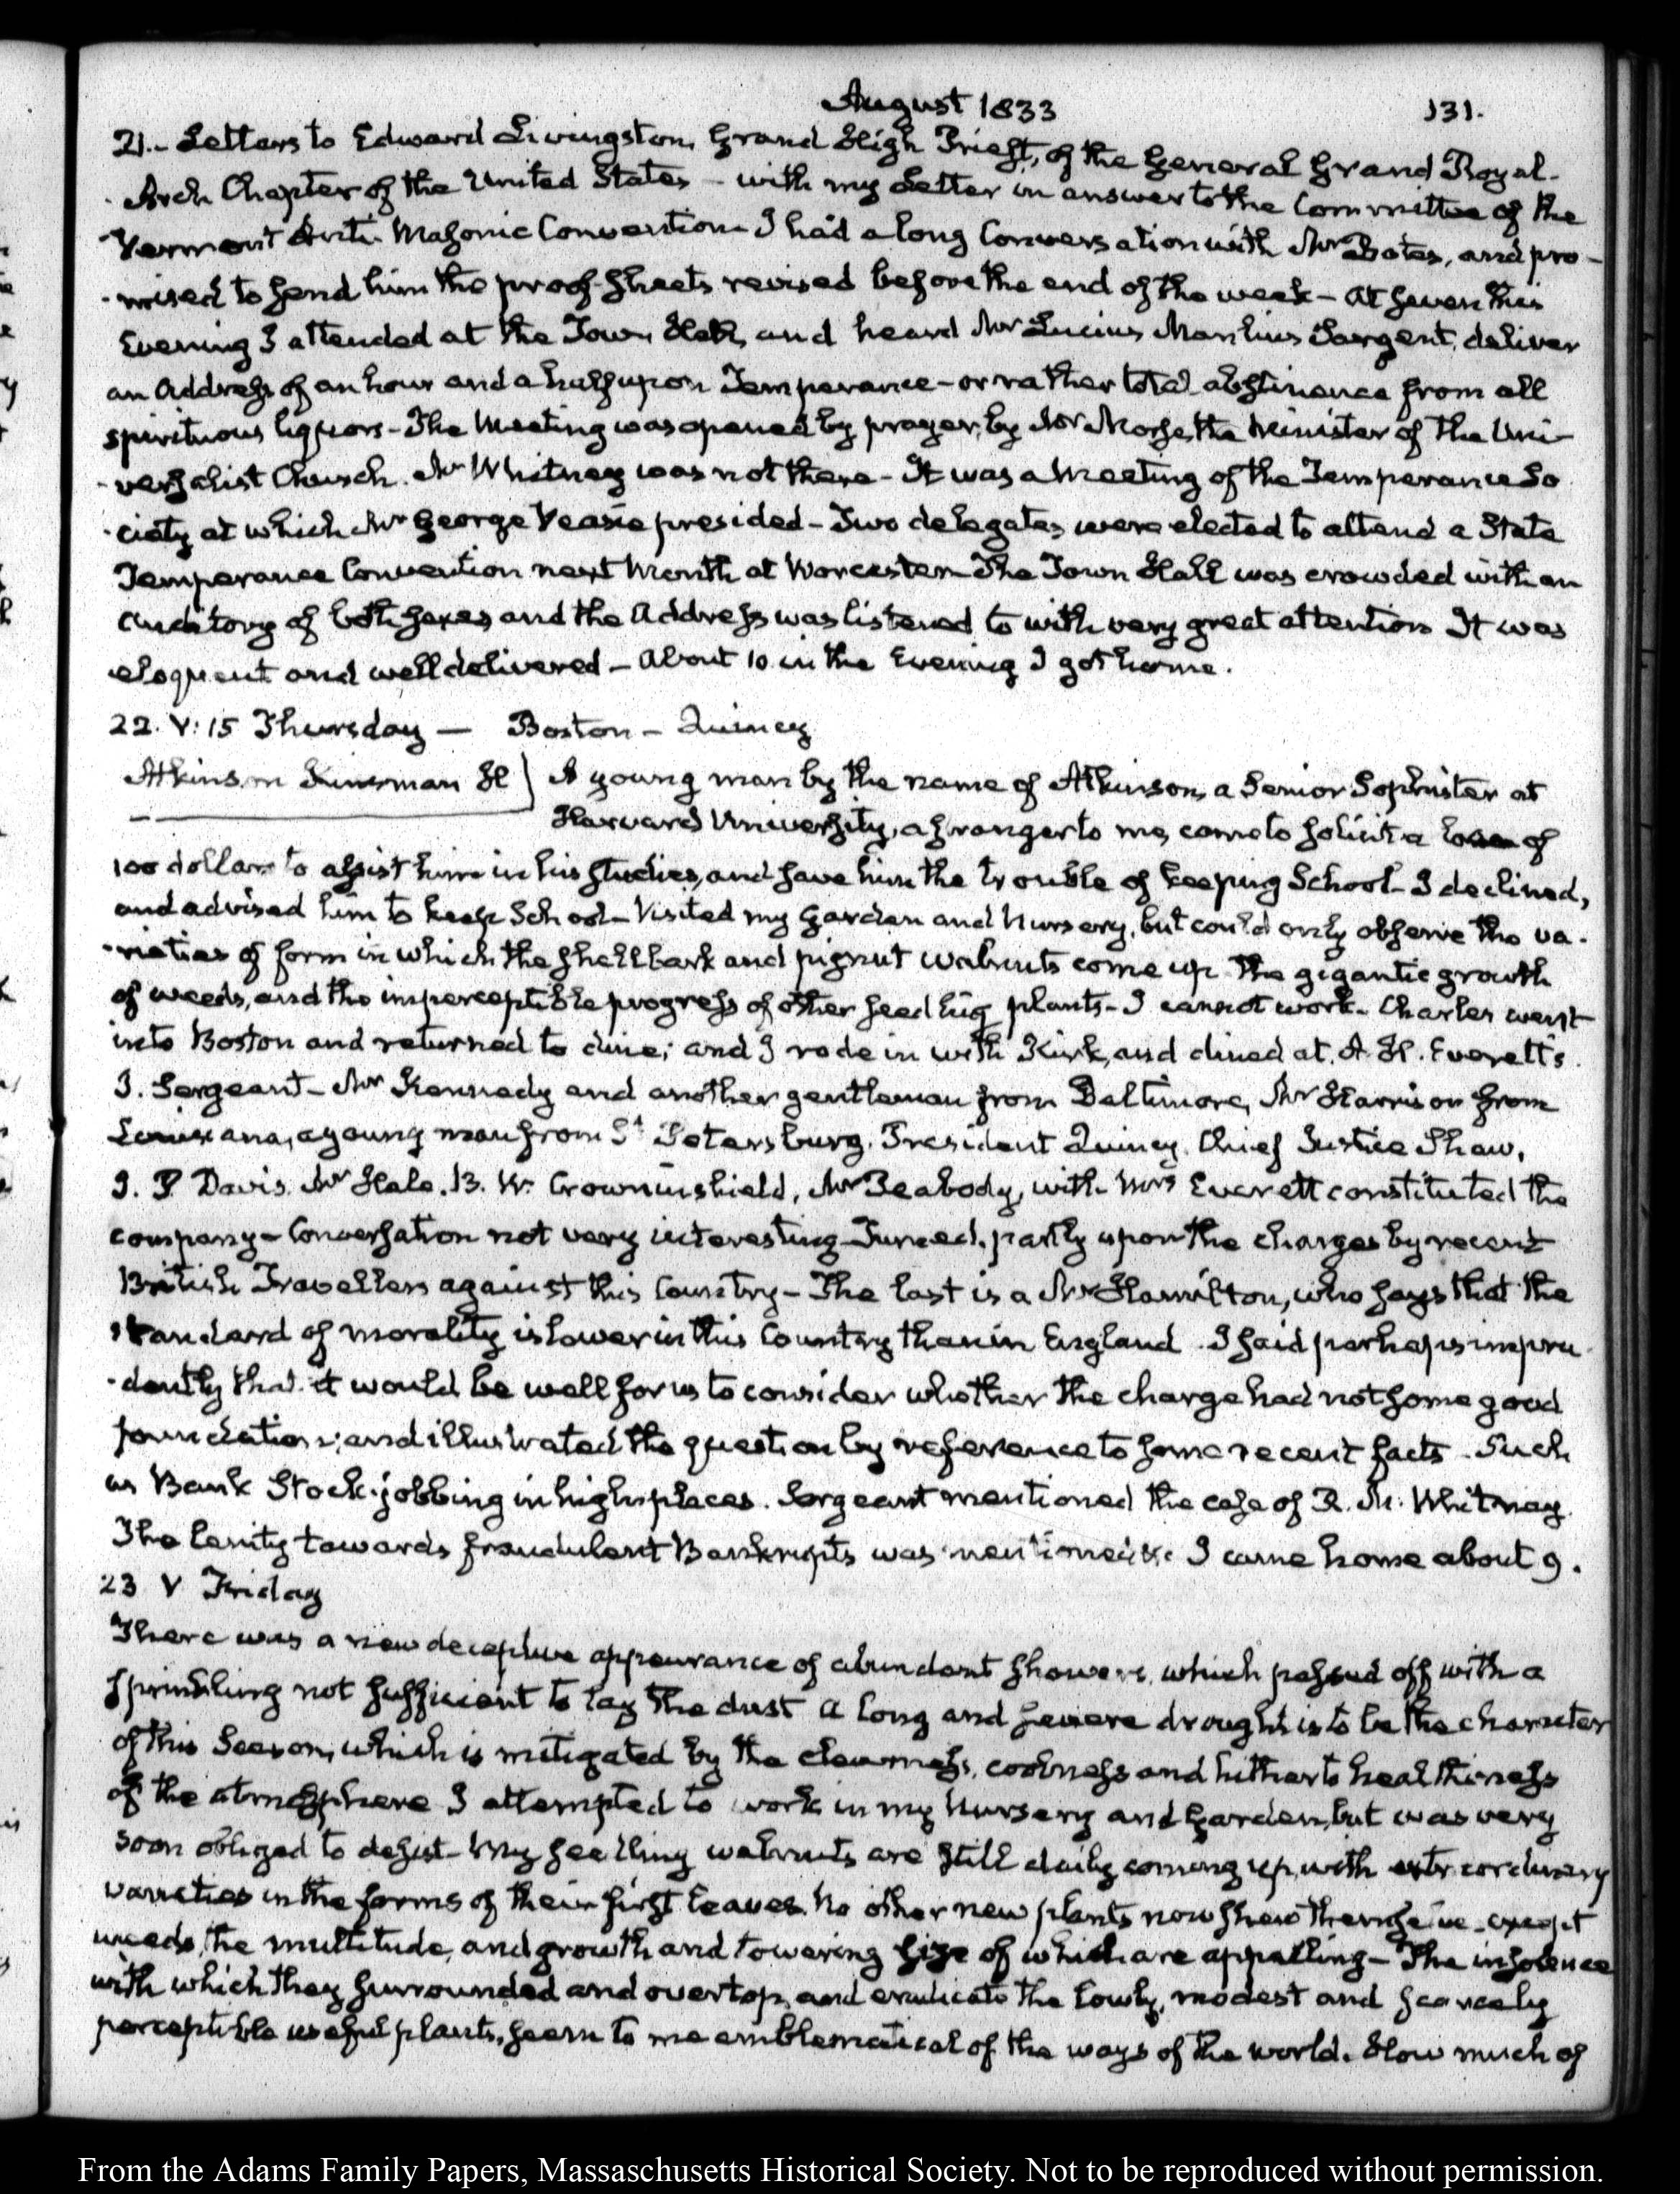 August 1833
131.
21.- Letters to Edward Livingston, Grand High Priest, of the General Grand Royal-
Arch Chapter of the United States - with my Letter in answer to the Committee of the
Vermont Anti-Masonic Convention I had a long Conversation with Mr Bates, and pro-
-mised to send him the proof-sheets revised before the end of the week - At seven this
Evening I attended at the Town Hall, and heard Mr Lucius Manlius Sargent, deliver
an Address of an hour and a half upon Temperance - or rather total abstinence from all
spirituous liquors - The Meeting was opened by prayer, by Mr Morse, the Minister of the Uni-
-versalist Church. Mr Whitney was not there - It was a Meeting of the Temperance So
-ciety at which Mr George Veasie presided - Two delegates were elected to attend a State
Temperance Convention next Month at Worcester - The Town Hall was crowded with an
Auditory of both sexes and the Address was listened to with very great attention It was
eloquent and well delivered - About 10 in the Evening I got home.
22. V:15 Thursday — Boston - Quincy
Atkinson Kinsman H) A young man by the name of Atkinson, a Senior Sophister at
Harvard University, a stranger to me, came to solicit a loan of
100 dollars to assist him in his studies, and save him the trouble of keeping School - I declined,
and advised him to keep School - Visited my Garden and Nursery, but could only observe the va-
-rieties of form in which the shellbark and pignut walnuts come up the gigantic growth
of weeds, and the imperceptible progress of other seedling plants - I cannot work - Charles went
into Boston and returned to dine; and I rode in with Kirk, and dined at A. H. Everett's.
J. Sergeant - Mr Kennedy and another gentleman from Baltimore, Mr Harrison from
Louisiana, a young man from St Petersburg, President Quincy, Chief Justice Shaw,
J. P. Davis. Mr Hale. B. W. Crowninshield, Mr Peabody, with Mrs Everett constituted the
company - Conversation not very interesting - Turned, partly upon the charges by recent
British Travellers against this Country - The last is a Mr Hamilton, who says that the
standard of morality is lower in this Country than in England. I said perhaps impru-
-dently that it would be well for us to consider whether the charge had not some good
foundation; and illustrated the question by reference to some recent facts. Such
as Bank Stock-jobbing in high places. Sergeant mentioned the case of R. M. Whitney.
The lenity towards fraudulent Bankrupts was mentioned &c I came home about 9.
23 V Friday
There was a new deceptive appearance of abundant showers, which passed off with a
sprinkling not sufficient to lay the dust A long and severe drought is to be the character
of this Season, which is mitigated by the clearness, coolness and hitherto healthiness
of the atmosphere I attempted to work in my Nursery and Garden, but was very
soon obliged to desist - My seedling walnuts are still daily coming up, with extraordinary
varieties in the forms of their first leaves. No other new plants now shew themselve - except
weeds, the multitude, and growth and towering size of which are appalling - The insolence
with which they surrounded and overtop, and eradicate the lowly, modest and scarcely
perceptible useful plants, seem to me emblematical of the ways of the world. How much of
From the Adams Family Papers, Massaschusetts Historical Society. Not to be reproduced without permission.